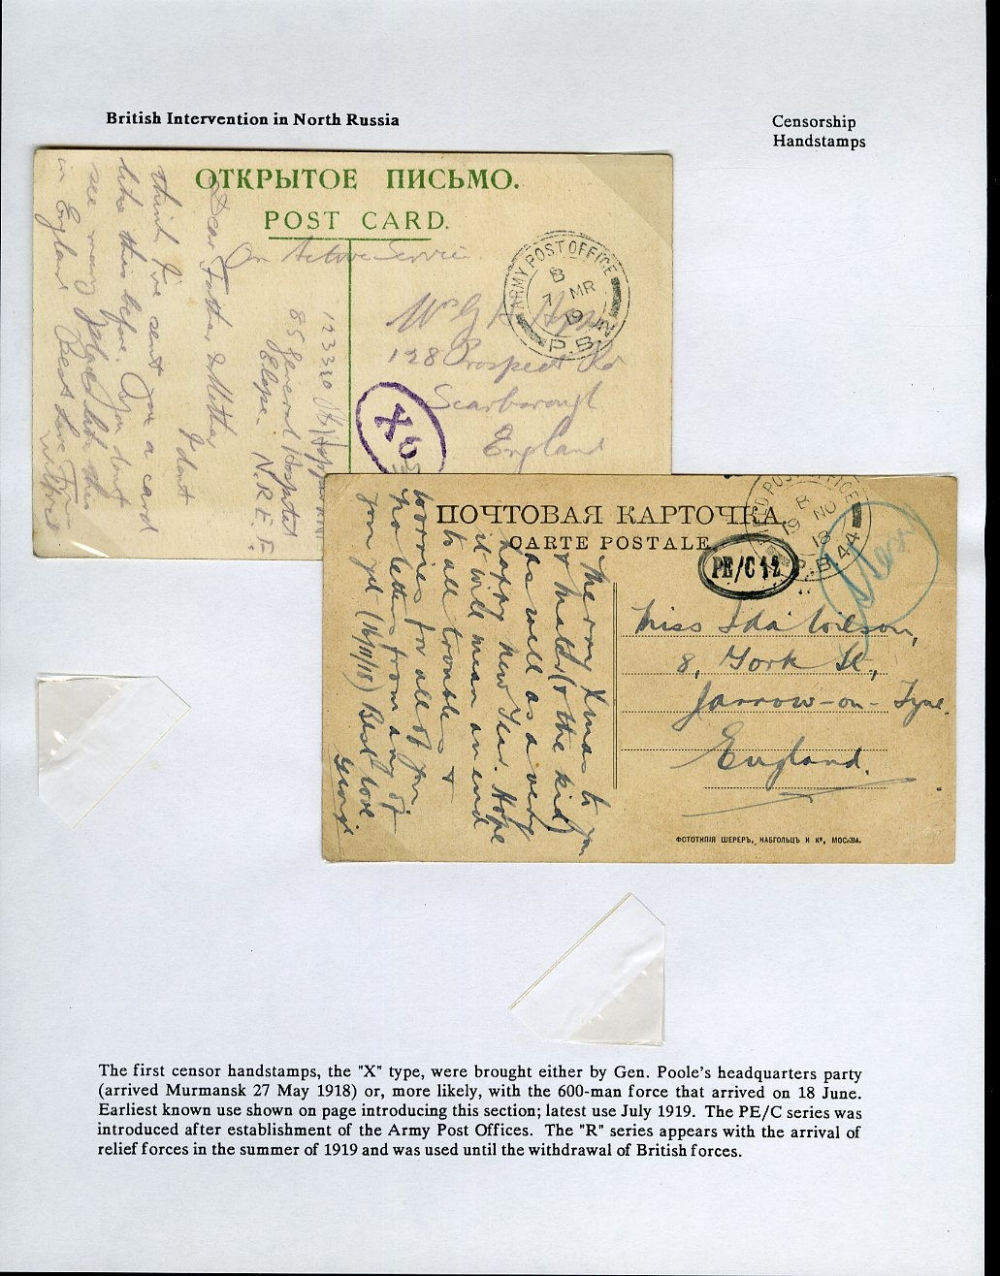 British Intervention in North Russia
Censorship
Handstamps
ОТКРЫТОЕ ПИСЬМО.
POST CARD.
On Active Service
ARMY POST OFFICE
B
7 MR
19
P.B.2
Mr G
128 Prospect Rd
Scarborough
England
X
Dear Father & Mother
I don't
think I've sent you a card
like this before. You don't
see many places like this
in England Best Love From
Wilfred
123320
85 General Hospital
Elope
N.R.E.F.
ПОЧТОВАЯ КАРТОЧКА
CARTE POSTALE
PE/C 12
19 NO
18
P.B.44
Miss Ida Wilson,
8, York St,
Jarrow-on-Tyne.
England.
Merry Xmas to you
& Matt & the kid
as well as a very
happy New Year. Hope
it will mean an end
to all troubles &
worries for all of you
No letters from any of
you yet (16/11/18) Best love
George
ФОТОТИПІЯ ШЕРЕРЪ, НАБГОЛЬЦЪ И Кº, МОСКВА.
The first censor handstamps, the "X" type, were brought either by Gen. Poole's headquarters party
(arrived Murmansk 27 May 1918) or, more likely, with the 600-man force that arrived on 18 June.
Earliest known use shown on page introducing this section; latest use July 1919. The PE/C series was
introduced after establishment of the Army Post Offices. The "R" series appears with the arrival of
relief forces in the summer of 1919 and was used until the withdrawal of British forces.